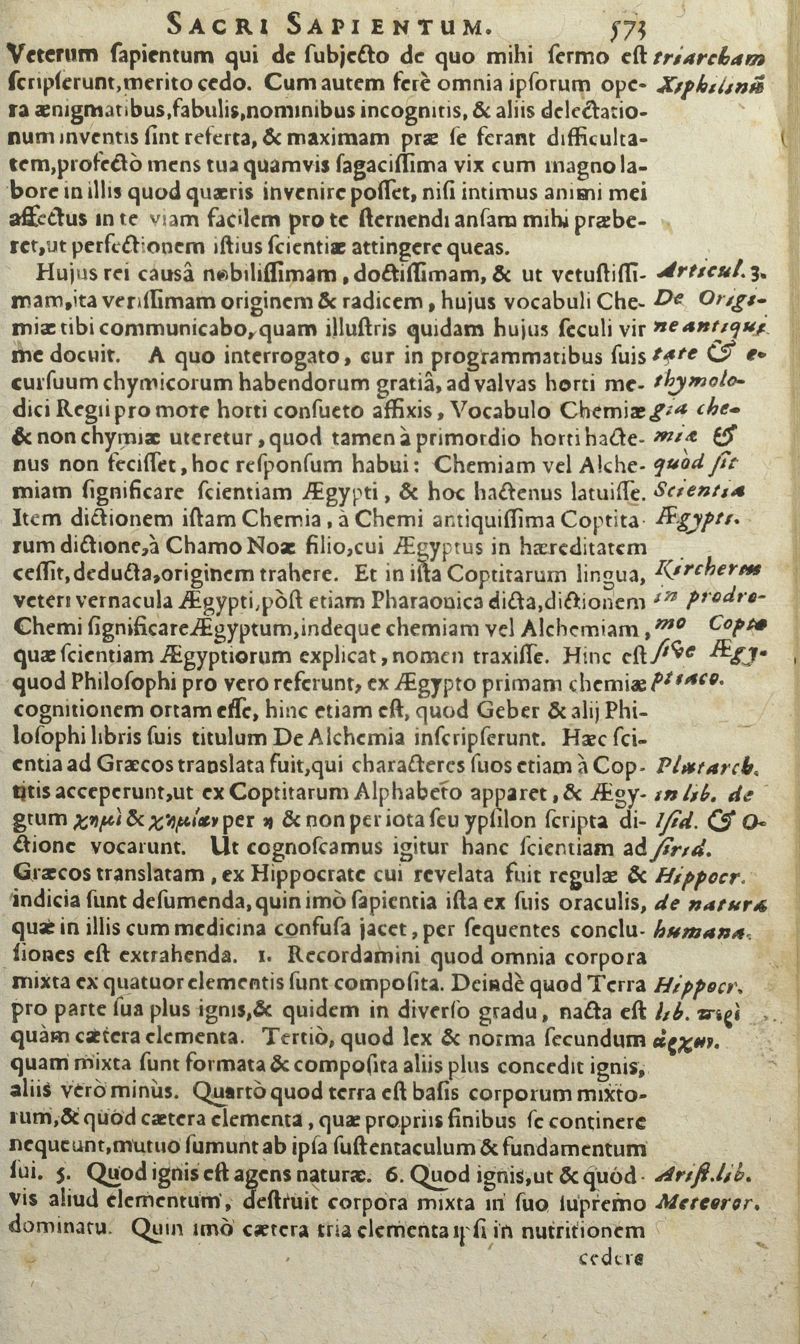 SACRI SAPIENTUM. 573
Veterum sapientum qui de subjecto de quo mihi sermo est
scripserunt, merito cedo. Cum autem ferè omnia ipsorum ope-
ra ænigmatibus, fabulis, nominibus incognitis, & aliis delectatio-
num inventis sint referta, & maximam præ se ferant difficulta-
tem, profectò mens tua quamvis sagacissima vix cum magno la-
bore in illis quod quæris invenire posset, nisi intimus animi mei
affectus in te viam facilem pro te sternendi ansam mihi præbe-
ret, ut perfectionem istius scientiæ attingere queas.
Hujus rei causâ nobilissimam, doctissimam, & ut vetustissi-
mam, ita verissimam originem & radicem, hujus vocabuli Che-
miæ tibi communicabo, quam illustris quidam hujus seculi vir
me docuit. A quo interrogato, cur in programmatibus suis
cursuum chymicorum habendorum gratiâ, ad valvas horti me-
dici Regii pro more horti consueto affixis, Vocabulo Chemiæ
& non chymiæ uteretur, quod tamen à primordio horti hacte-
nus non fecisset, hoc responsum habui: Chemiam vel Alche-
miam significare scientiam Ægypti, & hoc hactenus latuisse.
Item dictionem istam Chemia, à Chemi antiquissima Coptita-
rum dictione, à Chamo Noæ filio, cui Ægyptus in hæreditatem
cessit, deducta, originem trahere. Et in ista Coptitarum lingua,
veteri vernacula Ægypti, pòst etiam Pharaonica dicta, dictionem
Chemi significare Ægyptum, indeque chemiam vel Alchemiam,
quæ scientiam Ægyptiorum explicat, nomen traxisse. Hinc est
quod Philosophi pro vero referunt, ex Ægypto primam chemiæ
cognitionem ortam esse, hinc etiam est, quod Geber & alij Phi-
losophi libris suis titulum De Alchemia inscripserunt. Hæc sci-
entia ad Græcos translata fuit, qui characteres suos etiam à Cop-
titis acceperunt, ut ex Coptitarum Alphabeto apparet, & Ægy-
ptum χημὶ & χημίαν per η & non per iota seu ypsilon scripta di-
ctione vocarunt. Ut cognoscamus igitur hanc scientiam ad
Græcos translatam, ex Hippocrate cui revelata fuit regulæ &
indicia sunt desumenda, quin imò sapientia ista ex suis oraculis,
quæ in illis cum medicina confusa jacet, per sequentes conclu-
siones est extrahenda. 1. Recordamini quod omnia corpora
mixta ex quatuor elementis sunt composita. Deinde quod Terra
pro parte sua plus ignis, & quidem in diverso gradu, nacta est
quàm cætera elementa. Tertiò, quod lex & norma secundum
quam mixta sunt formata & composita aliis plus concedit ignis,
aliis verò minùs. Quartò quod terra est basis corporum mixto-
rum, & quòd cætera elementa, quæ propriis finibus se continere
nequeunt, mutuo sumunt ab ipsa sustentaculum & fundamentum
sui. 5. Quod ignis est agens naturæ. 6. Quod ignis, ut & quòd-
vis aliud elementum, destruit corpora mixta in suo supremo
dominatu. Quin imò cætera tria elementa ipsi in nutritionem
cedere
triarcham
Xiphilinũ
Articul. 3.
De Origi-
ne antiqui-
tate & e-
thymolo-
gia che-
mia &
quòd sit
Scientia
Ægypti.
Kircherus
in prodro-
mo Copto
sive Ægy-
ptiaco.
Plutarch.
in lib. de
Isid. & O-
sirid.
Hippocr.
de natura
humana.
Hippocr.
lib. περὶ
ἀρχῶν.
Arist. lib.
Meteoror.